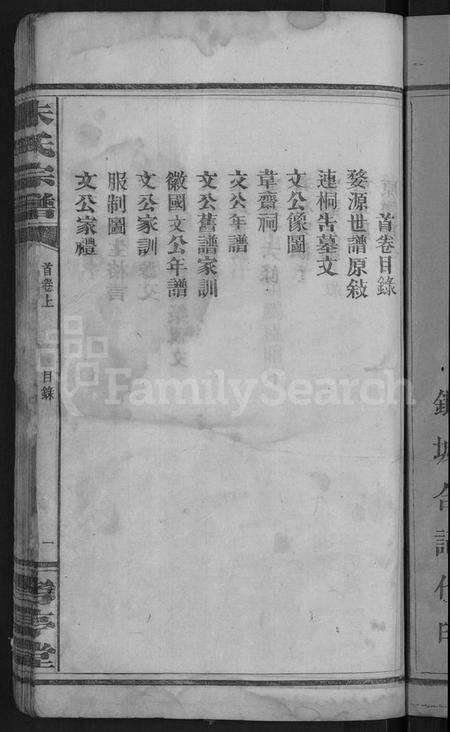 首卷目錄
婺源世譜原敍
連桐告墓文
文公像圖
韋齋祠
文公年譜
文公舊譜家訓
徽國文公年譜
文公家訓
服制圖
文公家禮
朱氏宗譜
首卷上
目錄
一
堂
FamilySearch